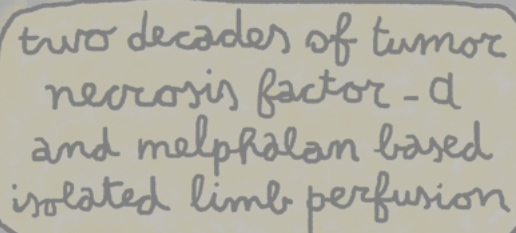 two decades of tumor
necrosis factor-α
and melphalan based
isolated limb perfusion